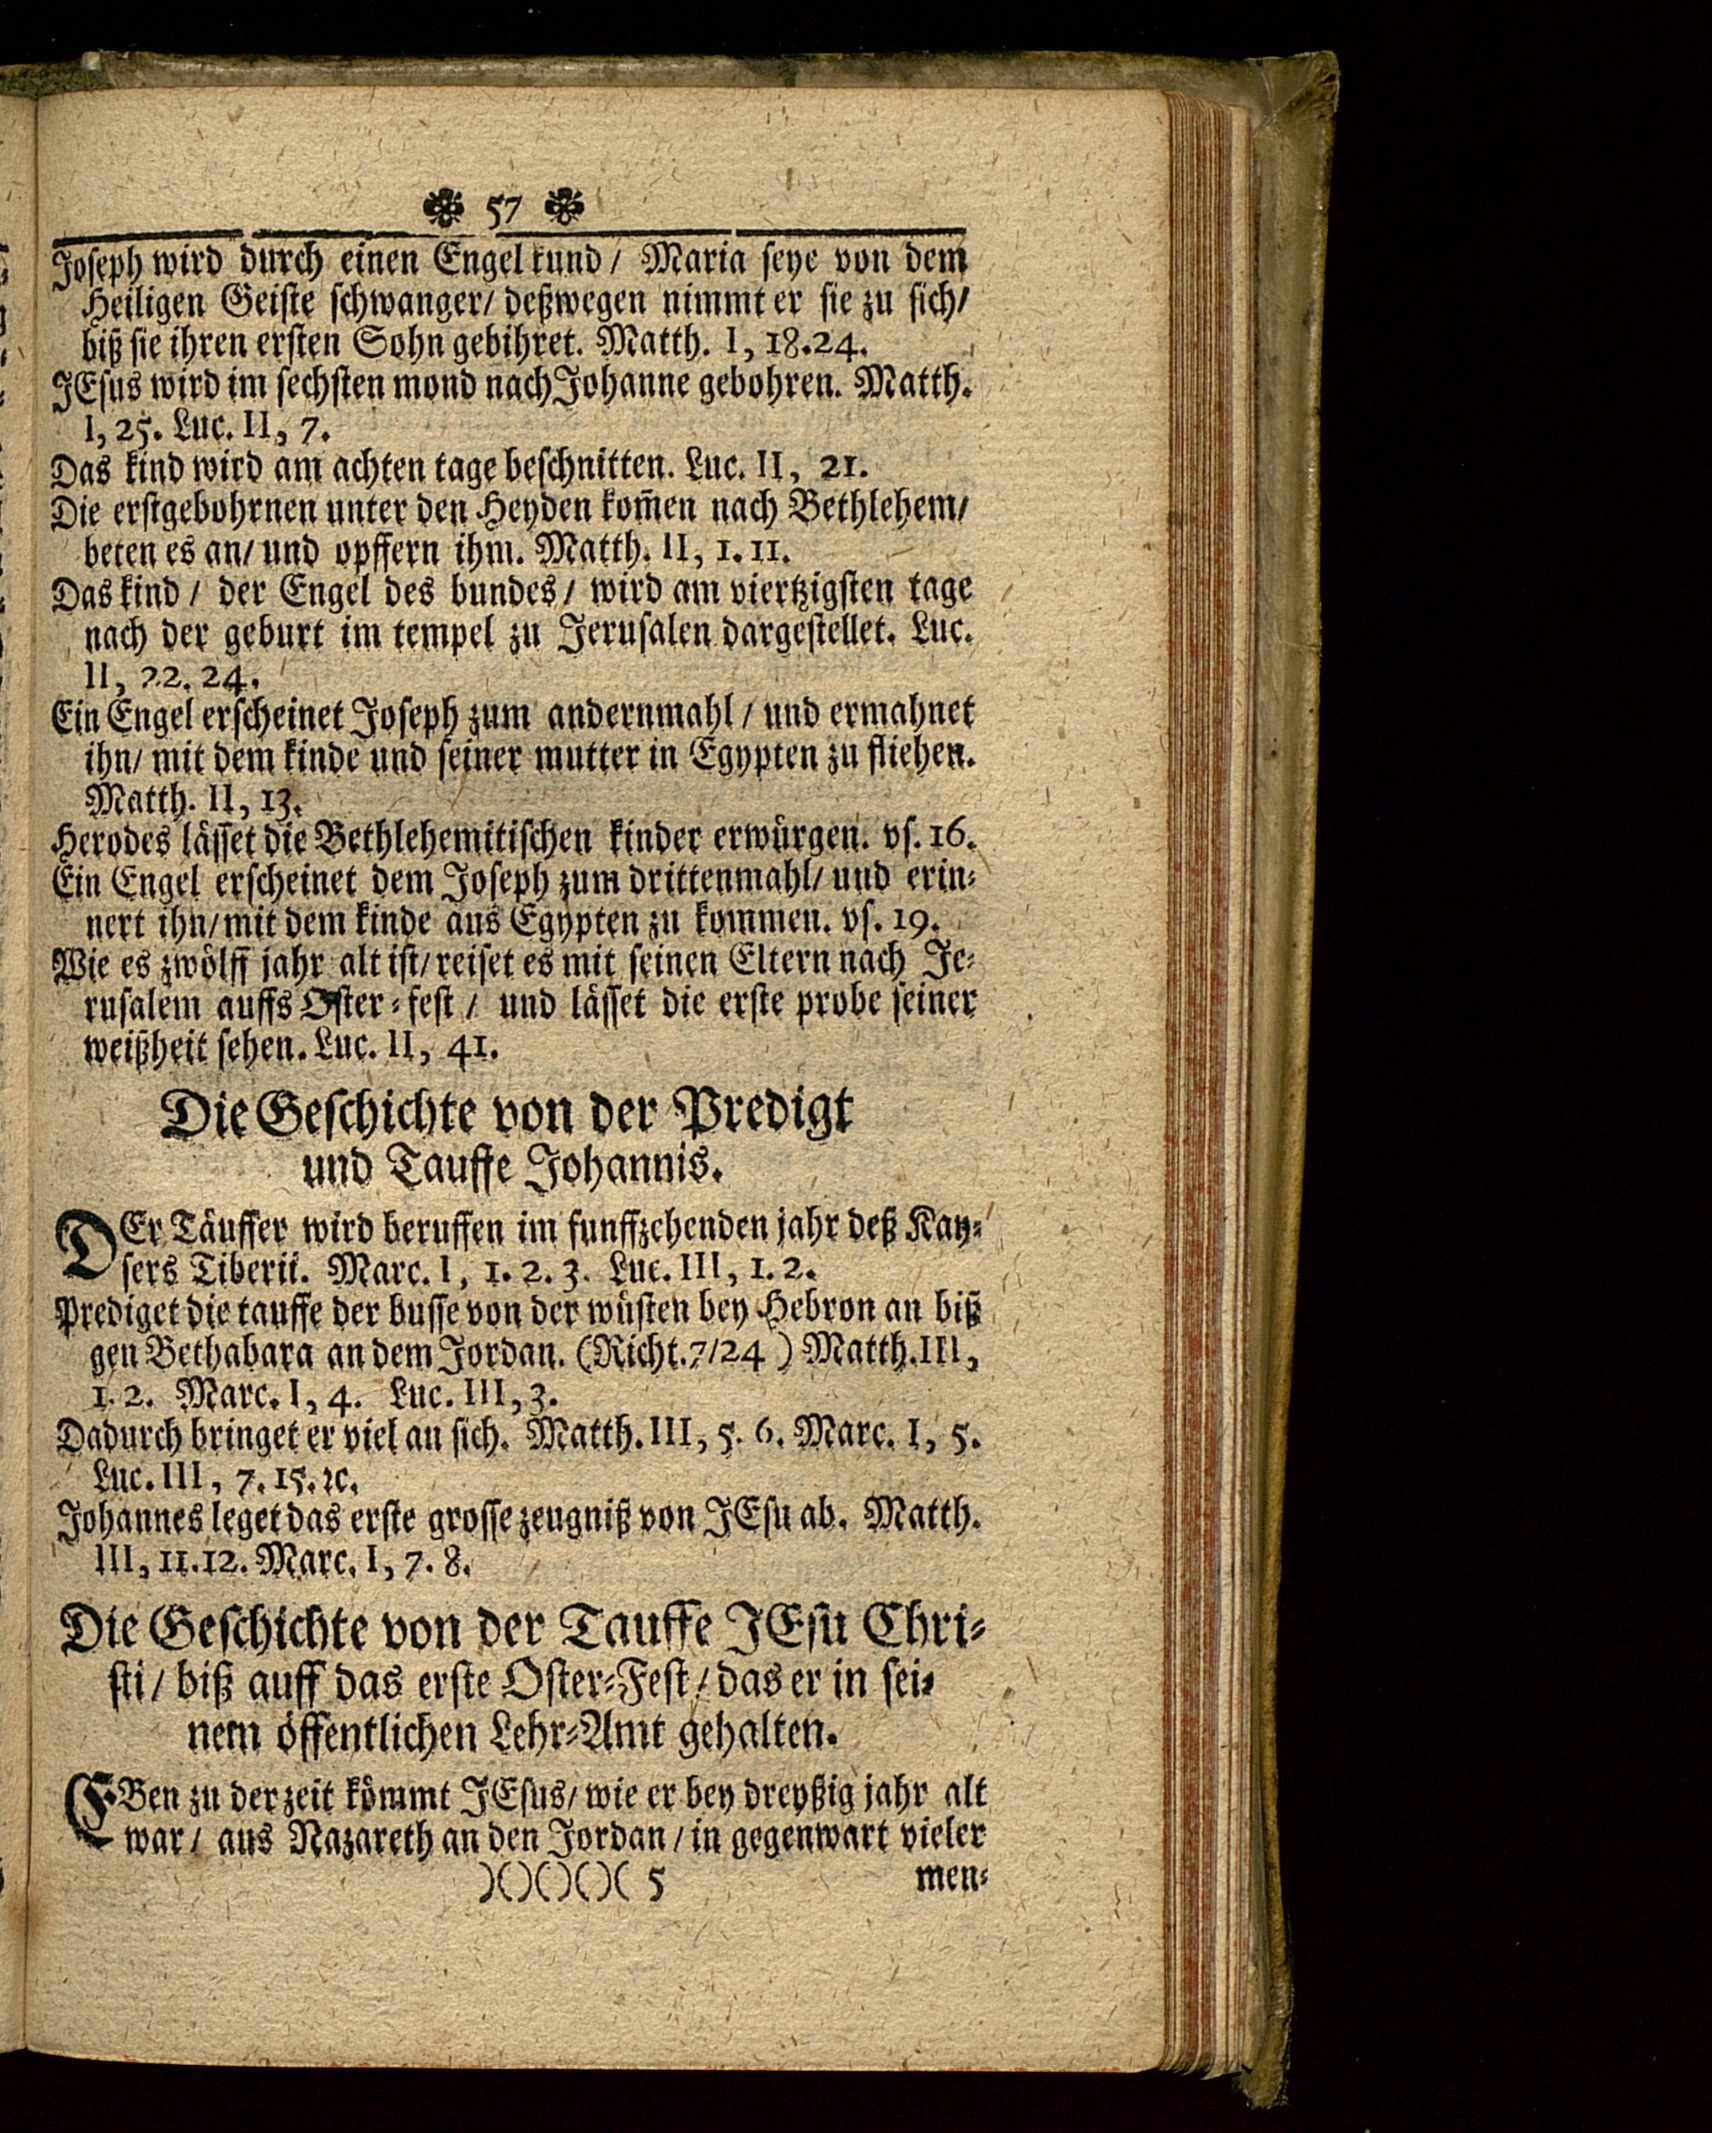 57
Joseph wird durch einen Engel kund / Maria seye von dem
Heiligen Geiste schwanger / deßwegen nimmt er sie zu sich /
biß sie ihren ersten Sohn gebihret. Matth. I, 18.24.
JEsus wird im sechsten mond nach Johanne gebohren. Matth.
I, 25. Luc. II, 7.
Das kind wird am achten tage beschnitten. Luc. II, 21.
Die erstgebohrnen unter den Heyden kom̃en nach Bethlehem /
beten es an / und opffern ihm. Matth. II, 1. 11.
Das kind / der Engel des bundes / wird am viertzigsten tage
nach der geburt im tempel zu Jerusalen dargestellet. Luc.
II, 22. 24.
Ein Engel erscheinet Joseph zum andernmahl / und ermahnet
ihn / mit dem kinde und seiner mutter in Egypten zu fliehen.
Matth. II, 13.
Herodes lässet die Bethlehemitischen kinder erwürgen. vs. 16.
Ein Engel erscheinet dem Joseph zum drittenmahl / und erin-
nert ihn / mit dem kinde aus Egypten zu kommen. vs. 19.
Wie es zwölff jahr alt ist / reiset es mit seinen Eltern nach Je-
rusalem auffs Oster-fest / und lässet die erste probe seiner
weißheit sehen. Luc. II, 41.
Die Geschichte von der Predigt
und Tauffe Johannis.
DEr Täuffer wird beruffen im funffzehenden jahr deß Kay-
sers Tiberii. Marc. I, 1. 2. 3. Luc. III, 1. 2.
Prediget die tauffe der busse von der wüsten bey Hebron an biß
gen Bethabara an dem Jordan. (Richt. 7/24 ) Matth. III,
1. 2. Marc. I, 4. Luc. III, 3.
Dadurch bringet er viel an sich. Matth. III, 5. 6. Marc. I, 5.
Luc. III, 7. 15. ꝛc.
Johannes leget das erste grosse zeugniß von JEsu ab. Matth.
III, 11. 12. Marc. I, 7. 8.
Die Geschichte von der Tauffe JEsu Chri-
sti / biß auff das erste Oster-Fest / das er in sei-
nem öffentlichen Lehr-Amt gehalten.
EBen zu der zeit kömmt JEsus / wie er bey dreyßig jahr alt
war / aus Nazareth an den Jordan / in gegenwart vieler
)()()()( 5 men-